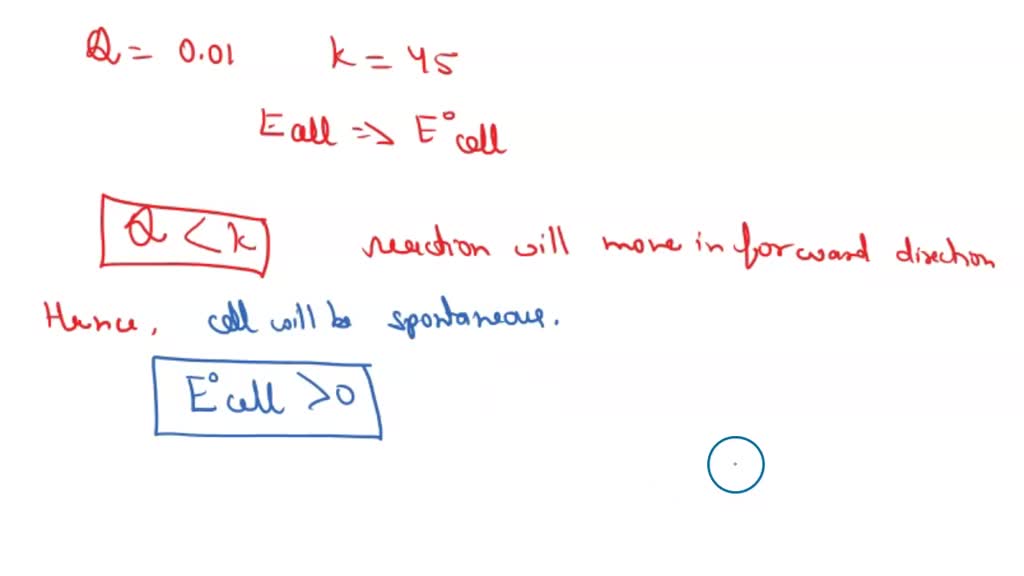 Q = 0.01 k = 45
Ecell => E°cell
Q < k reaction will move in forward direction
Hence, cell will be spontaneous.
E°cell >0